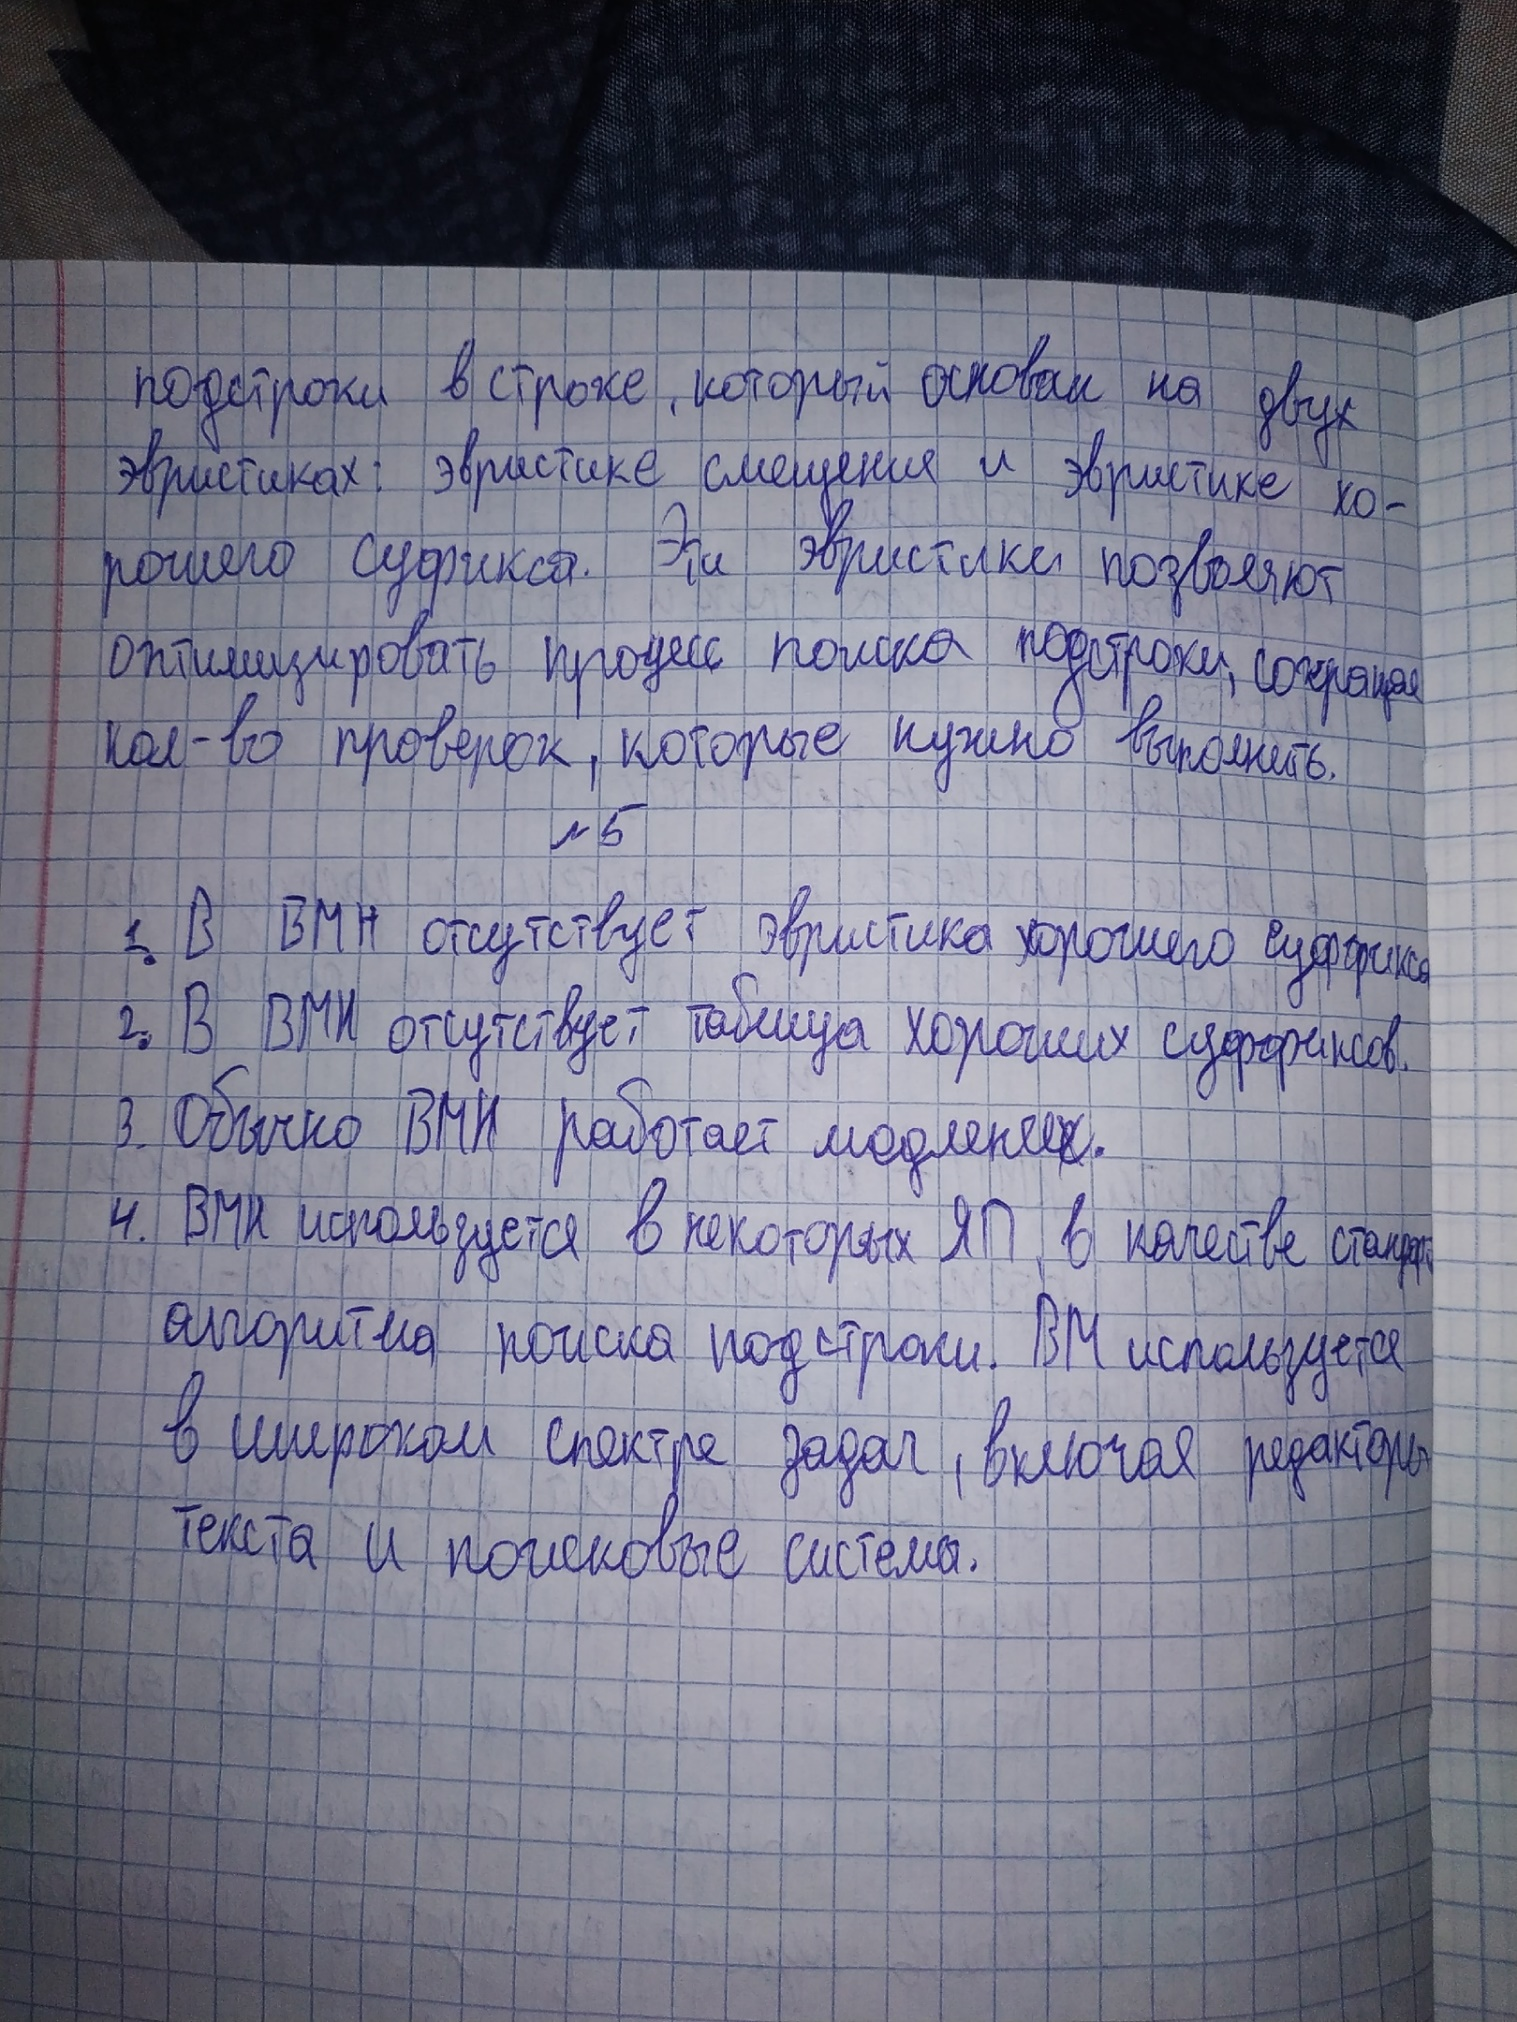 подстроки в строке, который основан на двух
эвристиках: эвристике смещения и эвристике хо-
рошего суфикса. Эти эвристики позволяют
оптимизировать процесс поиска подстроки, сокращая
кол-во проверок, которые нужно выполнить.
№5
1. В BMH отсутствует эвристика хорошего суффикса
2. В BMH отсутствует таблица хороших суффиксов.
3. Обычно BMH работает медленнее.
4. BMH используется в некоторых ЯП в качестве стандарт
алгоритма поиска подстроки. BM используется
в широком спектре задач, включая редакторы
текста и поисковые системы.